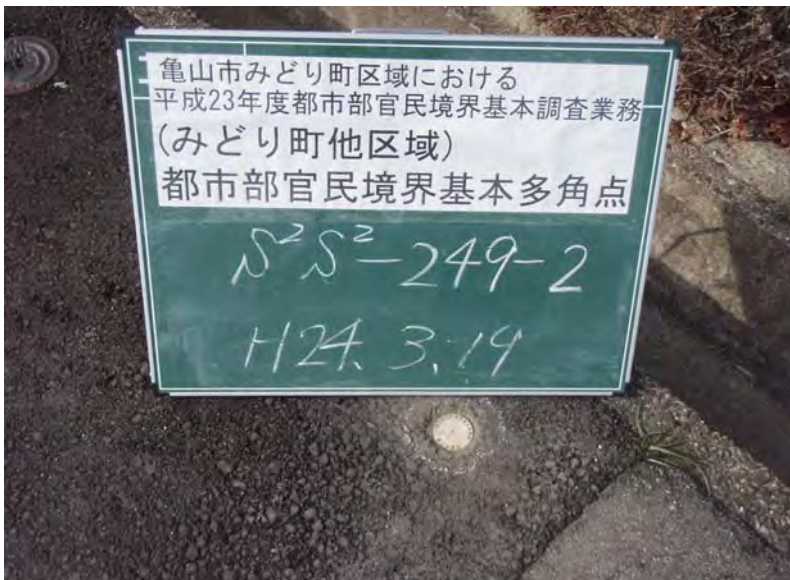 亀山市みどり町区域における
平成23年度都市部官民境界基本調査業務
(みどり町他区域)
都市部官民境界基本多角点
S²S²-249-2
H24.3.19